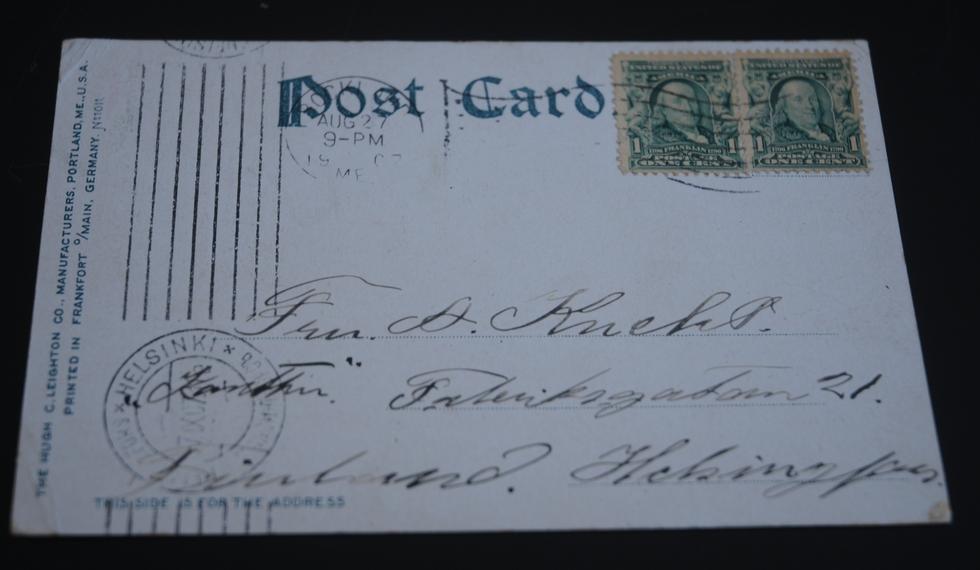 Post Card
AUG 27
9-PM
ME
UNITED STATES OF AMERICA
1 FRANKLIN 1
POSTAGE
ONE CENT
UNITED STATES OF AMERICA
1 FRANKLIN 1
POSTAGE
ONE CENT
THE HUGH C. LEIGHTON CO., MANUFACTURERS, PORTLAND, ME., U.S.A.
PRINTED IN FRANKFORT O/MAIN, GERMANY.
Fru. A. Knekt.
HELSINKI
Fabriksgatan 21.
Finland. Helsingfors.
THIS SIDE IS FOR THE ADDRESS